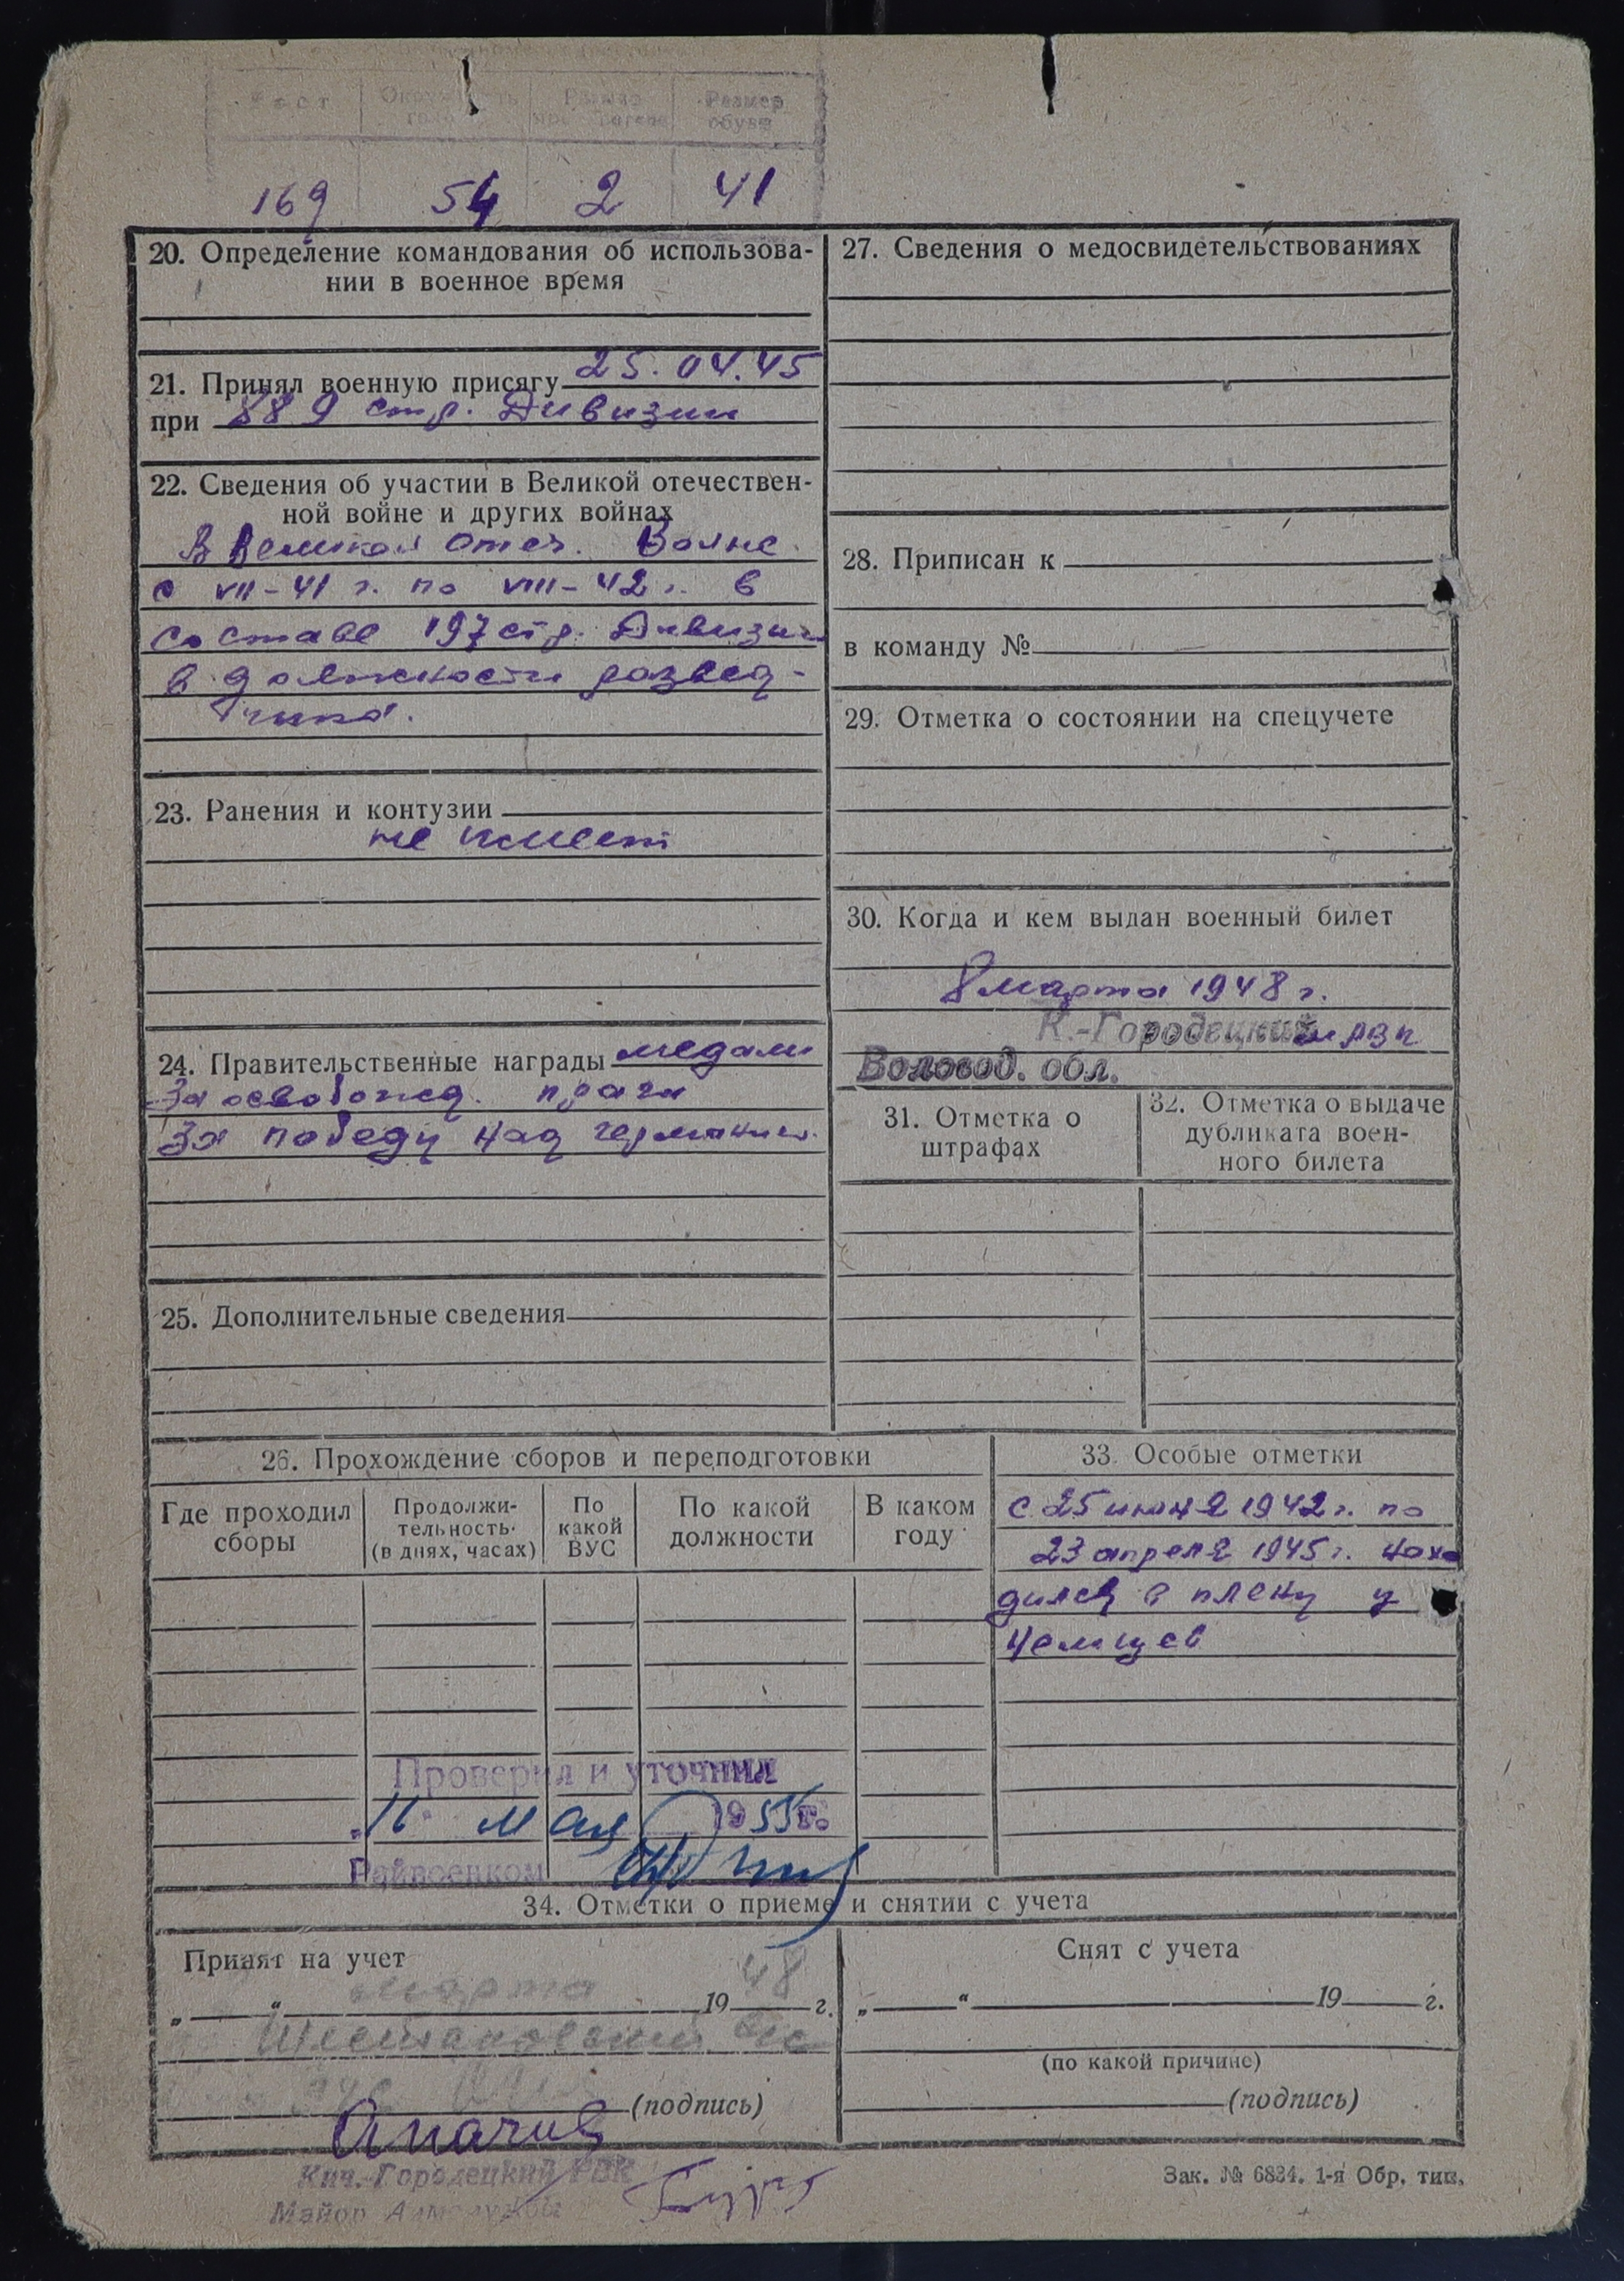 Рост Окружность Размер
обуви
169 54 2 41
20. Определение командования об использова-
нии в военное время
21. Принял военную присягу 25.04.45
при 889 стр. Дивизии
22. Сведения об участии в Великой отечествен-
ной войне и других войнах
В Великой Отеч. Войне
с VII-41 г. по VIII-42 г. в
составе 197 стр. Дивизии
в должности развед-
чика.
23. Ранения и контузии
не имеет
24. Правительственные награды медали
За освобожд. праги
За победу над германией.
25. Дополнительные сведения
26. Прохождение сборов и переподготовки
Где проходил
сборы
Продолжи-
тельность
(в днях, часах)
По
какой
ВУС
По какой
должности
В каком
году
Проверил и уточнил
„16" мая 1955 г.
Райвоенком
27. Сведения о медосвидетельствованиях
28. Приписан к
в команду №
29. Отметка о состоянии на спецучете
30. Когда и кем выдан военный билет
8 марта 1948 г.
К.-Городецким рвк
Вологод. обл.
31. Отметка о
штрафах
32. Отметка о выдаче
дубликата воен-
ного билета
33. Особые отметки
с 25 июня 1942 г. по
23 апреля 1945 г. нахо
дился в плену у
немцев
34. Отметки о приеме и снятии с учета
Принят на учет
„ " марта 1948 г.
(подпись)
Кич.-Городецкий РВК
Майор
Снят с учета
„ " 19 г.
(по какой причине)
(подпись)
Зак. № 6834. 1-я Обр. тип.